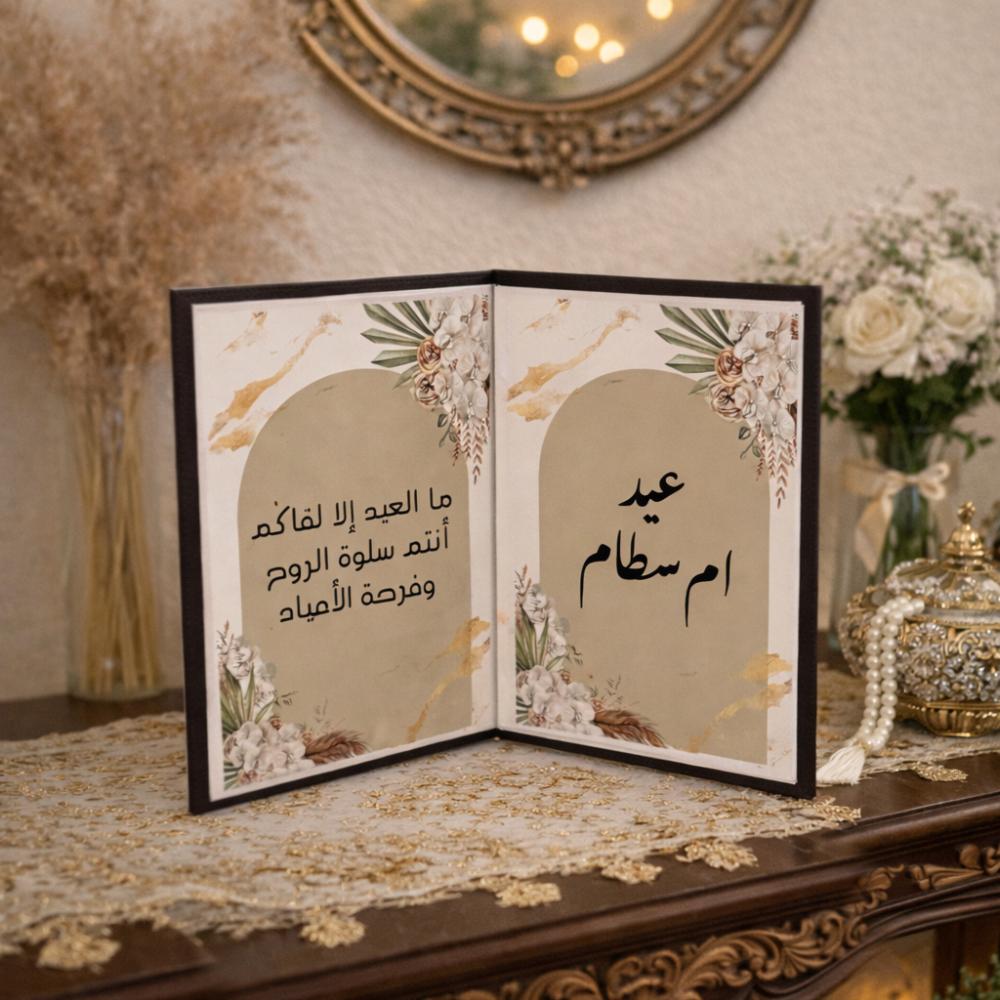 عيد
ام سطام
ما العيد إلا لقاكم
أنتم سلوة الروح
وفرحة الأعياد